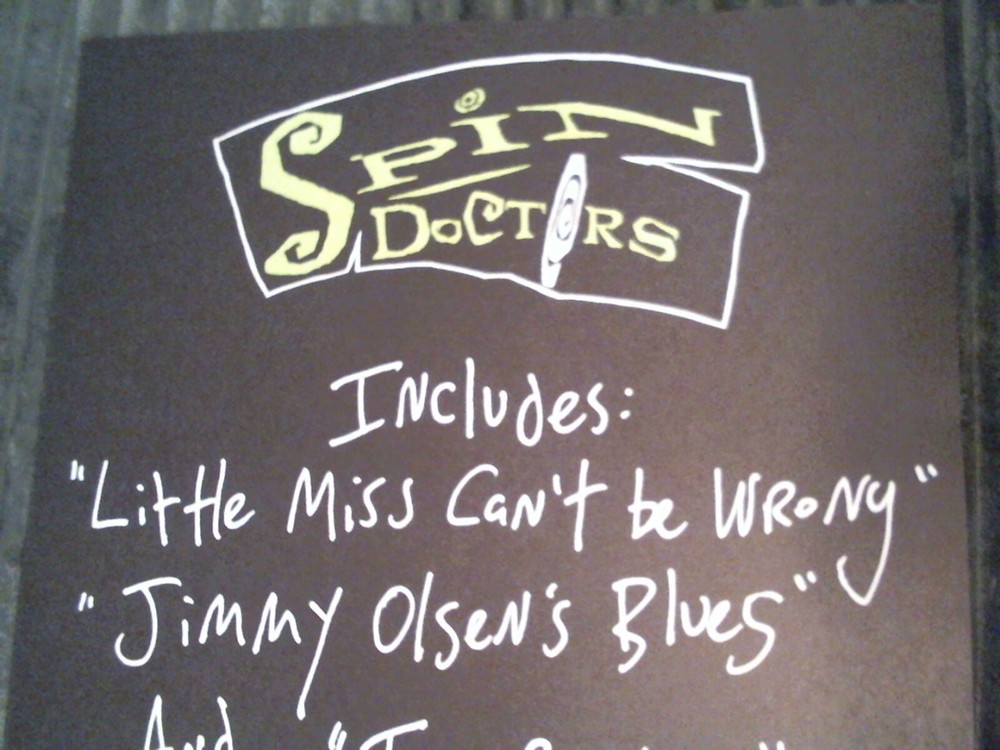 SPiN
DoCTORS
INcludes:
"Little Miss Can't be WRoNg"
"Jimmy Olsen's Blues"
And